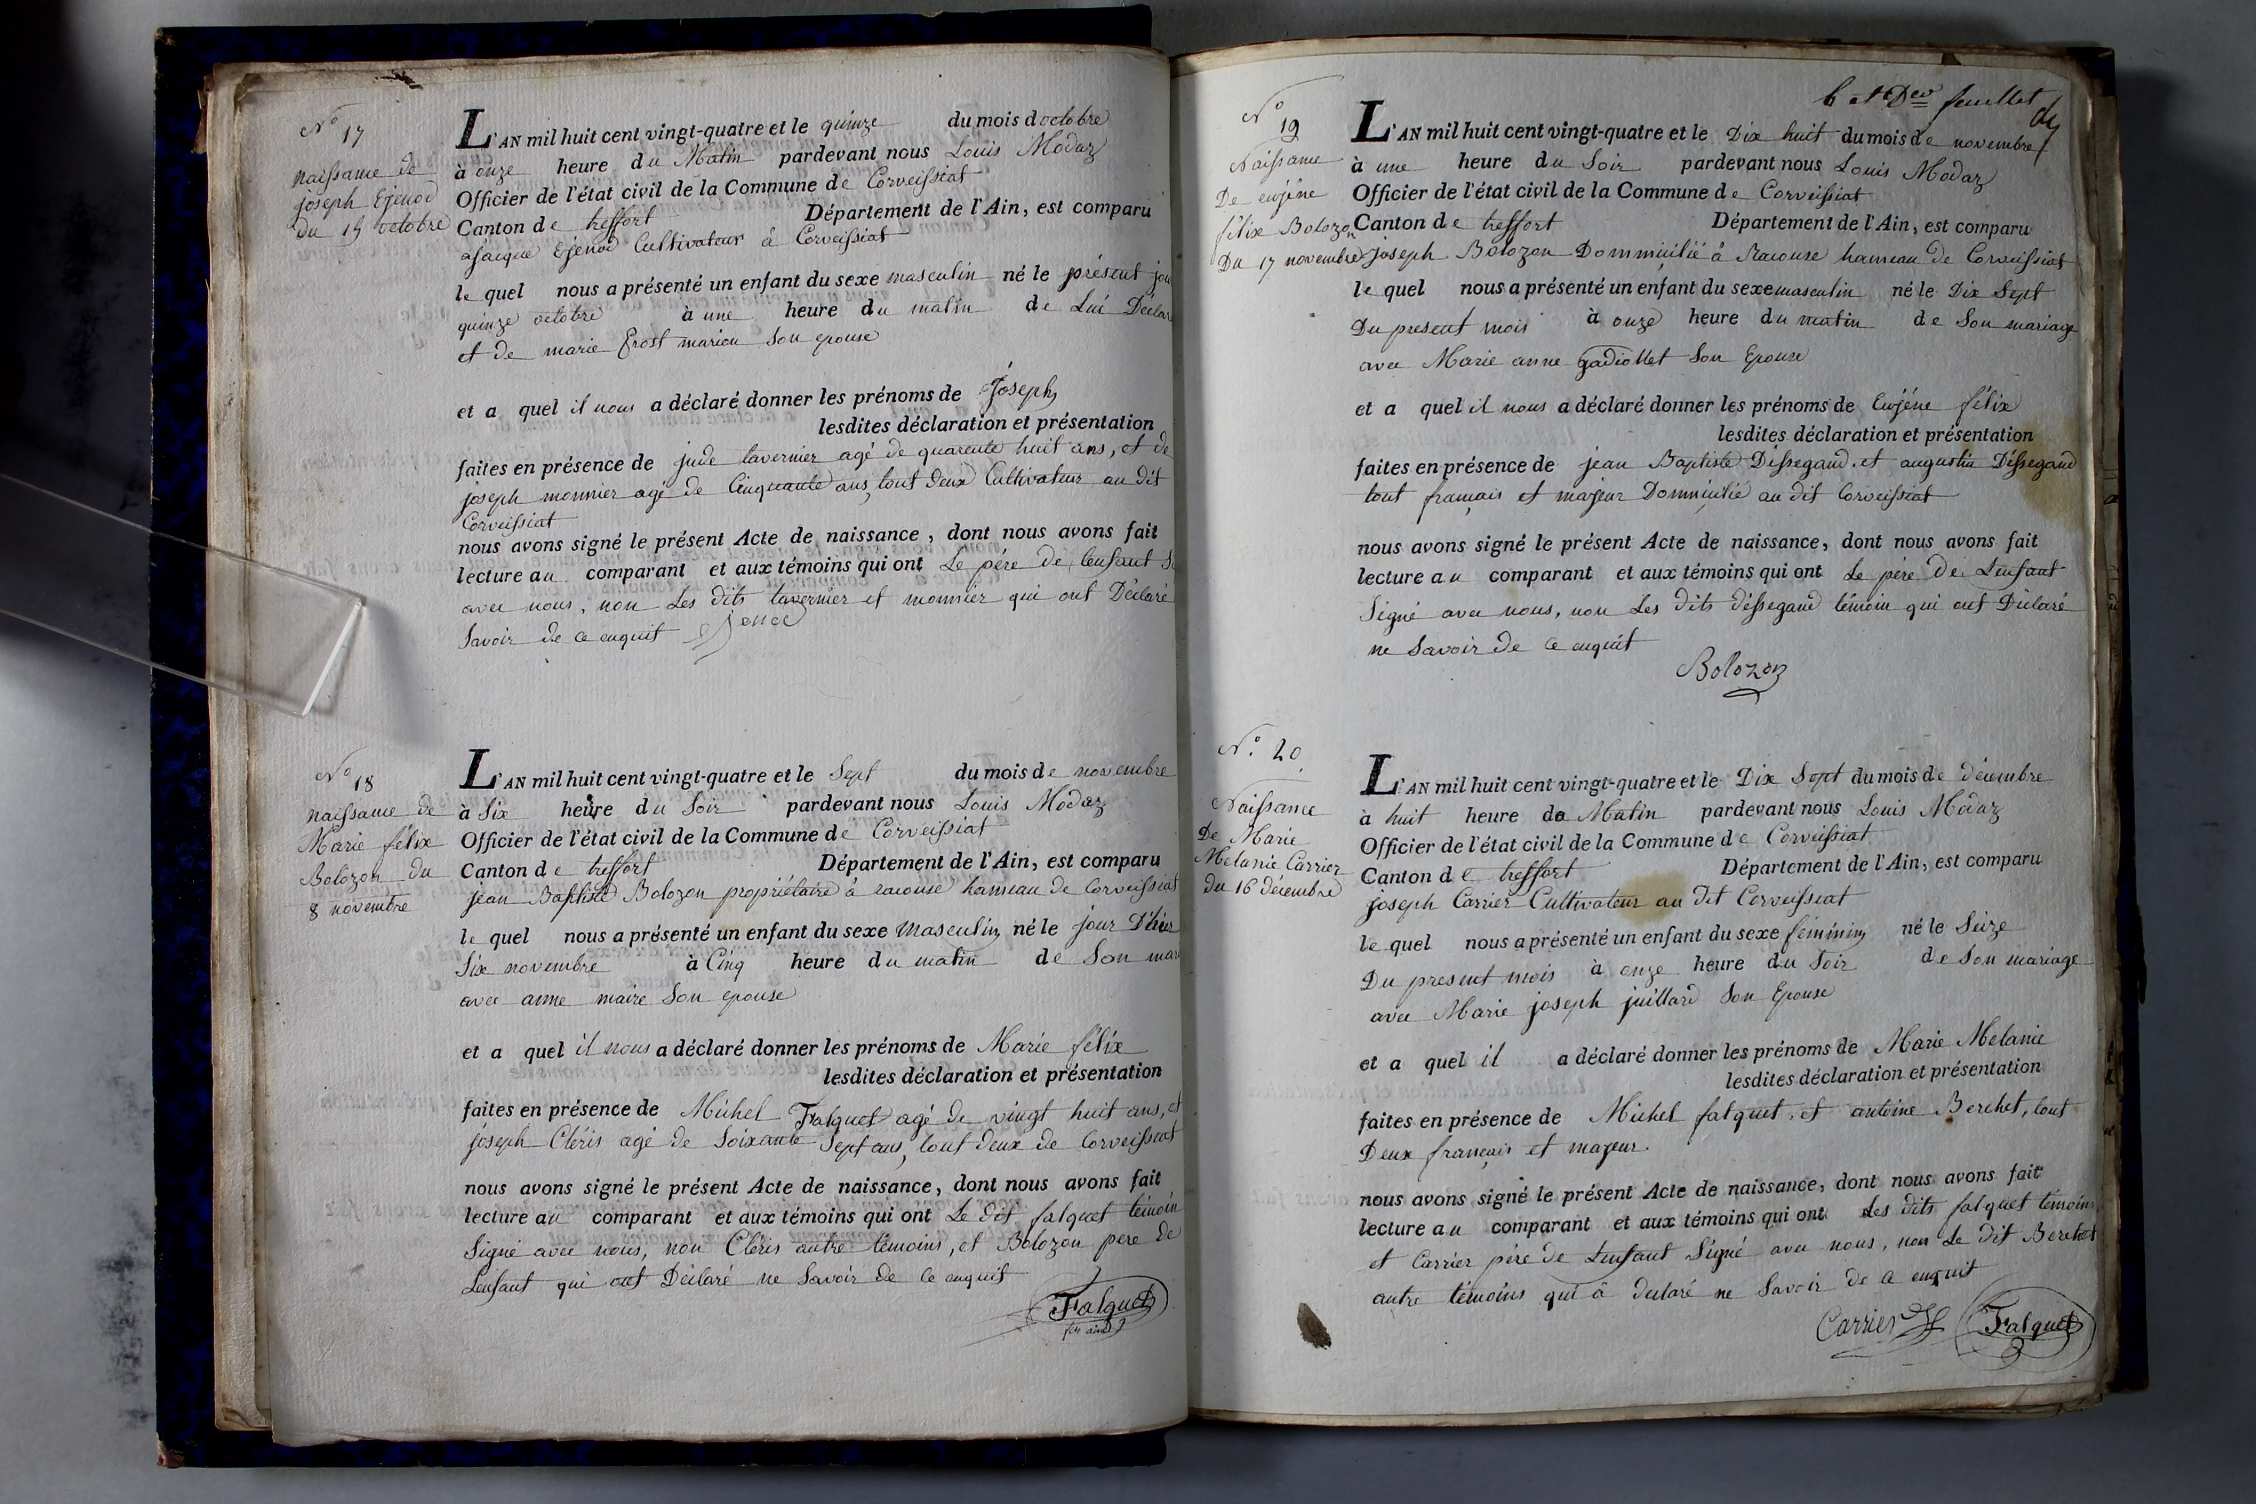 N.o 17
naissance de
joseph Ejenod
du 15 octobre
L'AN mil huit cent vingt-quatre et le quinze du mois doctobre
à onze heure du Matin pardevant nous Louis Modaz
Officier de l'état civil de la Commune de Corveissiat
Canton de treffort Département de l'Ain, est comparu
jacque Ejenod Cultivateur à Corveissiat
le quel nous a présenté un enfant du sexe masculin né le présent jour
quinze octobre à une heure du matin de Lui Déclar
et de marie frost marion son epouse
et a quel il nous a déclaré donner les prénoms de Joseph
lesdites déclaration et présentation
faites en présence de jude tavernier agé de quarente huit ans, et de
joseph monnier agé de Cinquante ans, tout deux Cultivateur au dit
Corveissiat
nous avons signé le présent Acte de naissance, dont nous avons fait
lecture au comparant et aux témoins qui ont Le père de lenfant S
avec nous, non Les dits tavernier et monnier qui ont Déclaré
Savoir de ce enquit Ejenod
N.o 18
naissance de
Marie félix
Bolozon du
8 novembre
L'AN mil huit cent vingt-quatre et le Sept du mois de novembre
à Six heure du Soir pardevant nous Louis Modaz
Officier de l'état civil de la Commune de Corveissiat
Canton de treffort Département de l'Ain, est comparu
jean Baptiste Bolozon propriétaire à racouse hameau de Corveissiat
le quel nous a présenté un enfant du sexe Masculin né le jour D'hier
Six novembre à Cinq heure du matin de Son mari
avec anne maire Son epouse
et a quel il nous a déclaré donner les prénoms de Marie félix
lesdites déclaration et présentation
faites en présence de Michel Falquet agé de vingt huit ans, et
joseph Cléris agé de Soixante Sept ans, tout deux de Corveissiat
nous avons signé le présent Acte de naissance, dont nous avons fait
lecture au comparant et aux témoins qui ont Le dit falquet témoin
Signé avec nous, non Cléris autre témoins, et Bolozon pere de
Lenfant qui ont Déclaré ne Savoir de ce enquit
Falquet
fils ainé
6 et Der feuillet
N.o 19
Naissance
De eujéne
félix Bolozon
Du 17 novembre
L'AN mil huit cent vingt-quatre et le Dix huit du mois de novembre
à une heure du Soir pardevant nous Louis Modaz
Officier de l'état civil de la Commune de Corveissiat
Canton de treffort Département de l'Ain, est comparu
Joseph Bolozon Dommicilié à Racouse hameau de Corveissiat
le quel nous a présenté un enfant du sexe masculin né le Dix Sept
Du present mois à onze heure du matin de Son mariage
avec Marie anne gadiollet Son Epouse
et a quel il nous a déclaré donner les prénoms de Eujéne félix
lesdites déclaration et présentation
faites en présence de jean Baptiste Déssegaud et augustin Déssegaud
tout français et majeur Dommicilié au dit Corveissiat
nous avons signé le présent Acte de naissance, dont nous avons fait
lecture au comparant et aux témoins qui ont Le père De Lenfant
Signé avec nous, non Les dits déssegaud témoin qui ont Déclaré
ne Savoir de ce enquit
Bolozon
N.o 20
Naissance
De Marie
Melanie Carrier
du 16 décembre
L'AN mil huit cent vingt-quatre et le Dix Sept du mois de décembre
à huit heure du Matin pardevant nous Louis Modaz
Officier de l'état civil de la Commune de Corveissiat
Canton de treffort Département de l'Ain, est comparu
joseph Carrier Cultivateur au dit Corveissiat
le quel nous a présenté un enfant du sexe féminin né le Seize
Du present mois à onze heure du Soir de Son mariage
avec Marie joseph juillard Son Epouse
et a quel il a déclaré donner les prénoms de Marie Melanie
lesdites déclaration et présentation
faites en présence de Michel falquet, et antoine Berchet, tout
Deux français et majeur.
nous avons signé le présent Acte de naissance, dont nous avons fait
lecture au comparant et aux témoins qui ont Les dits falquet témoins
et Carrier père de Lenfant Signé avec nous, non Le dit Berchet
autre témoins qui à declaré ne Savoir de ce enquit
Carrier Falquet